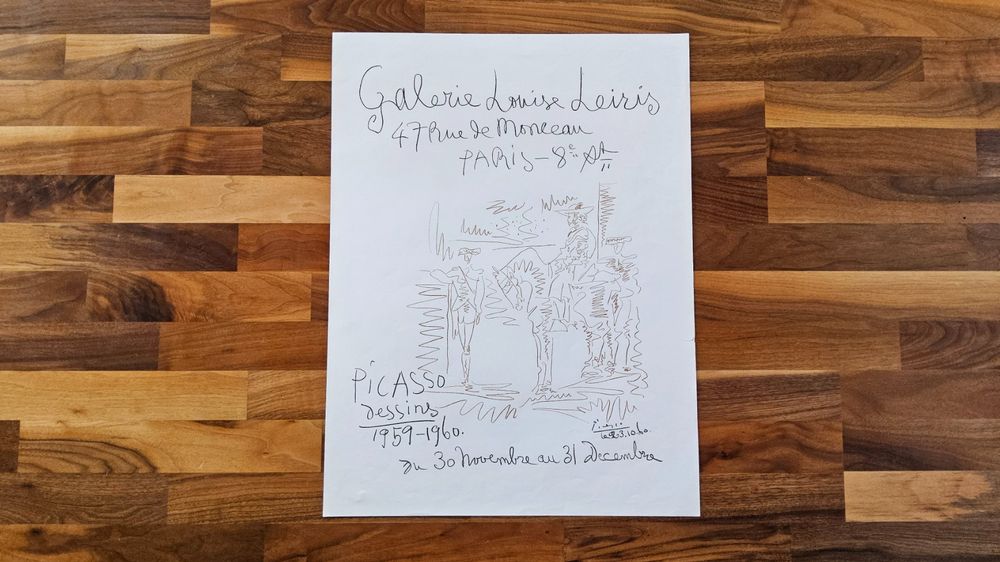 Galerie Louise Leiris
47 Rue de Monceau
PARIS-8e Art
PiCASSO
dessins
1959-1960.
Du 30 Novembre au 31 Decembre
Picasso
le 23.10.60.